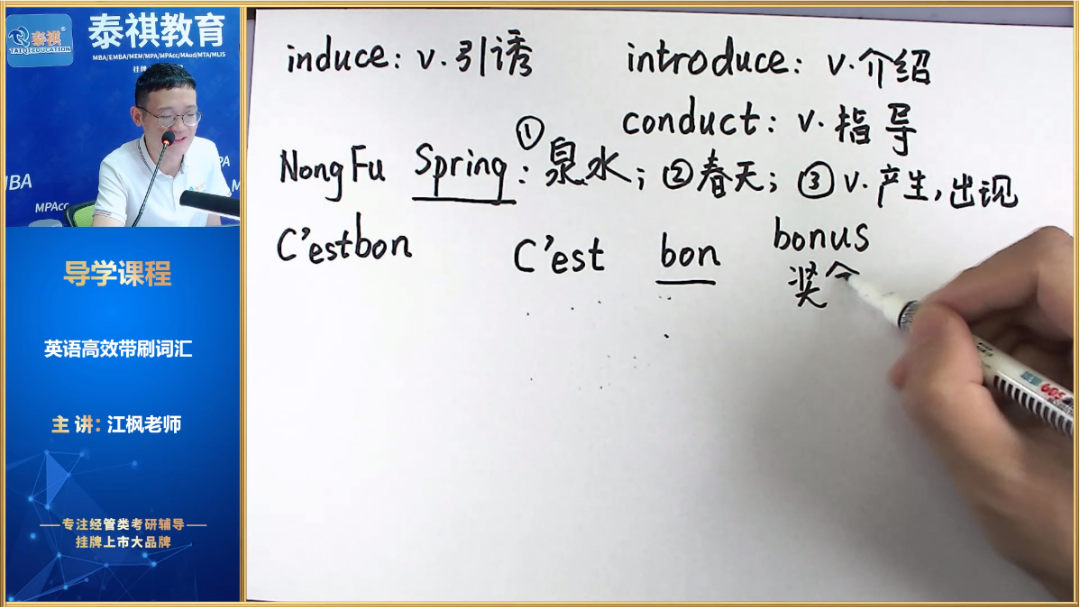 泰祺
TAIQIEDUCATION
泰祺教育
MBA/EMBA/MEM/MPA/MPAcc/MAud/MTA/MLIS
MBA
MPAcc
导学课程
英语高效带刷词汇
主 讲: 江枫老师
专注经管类考研辅导
挂牌上市大品牌
induce: v.引诱 introduce: v.介绍
conduct: v.指导
NongFu Spring: ①泉水; ②春天; ③v.产生,出现
C'estbon C'est bon bonus
奖